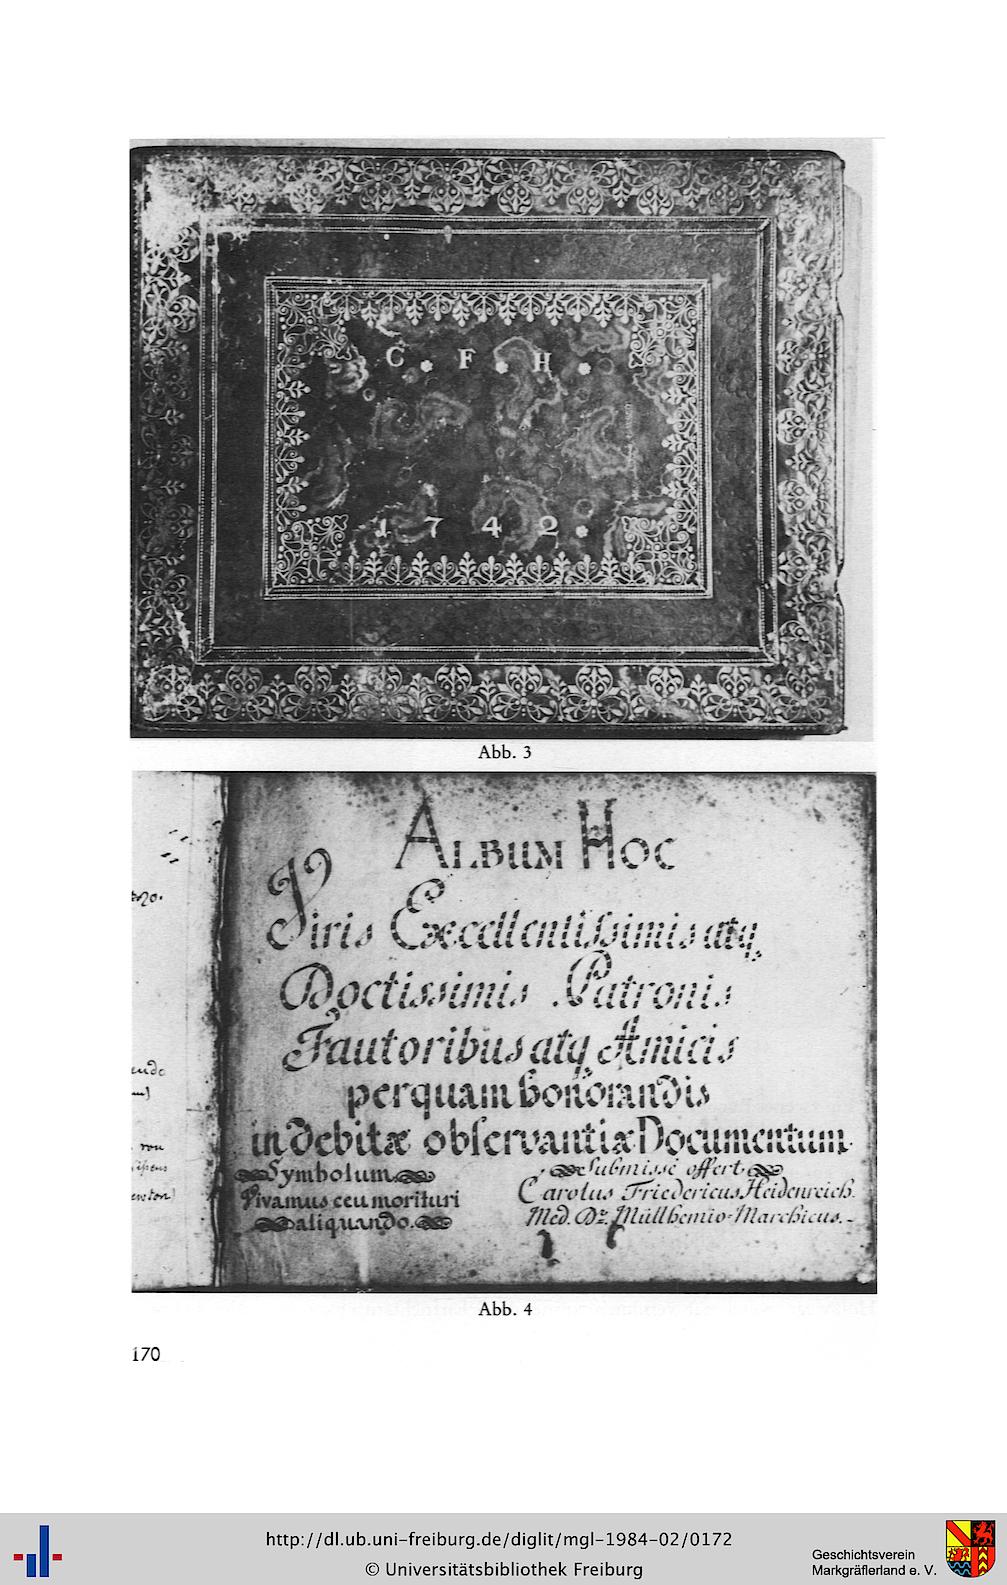 C F H
1742
Abb. 3
ALBUM HOC
Viris Excellentissimis atq
Doctissimis Patronis
Fautoribus atq Amicis
perquam honorandis
in debitæ observantiæ Documentum.
Symbolum
Vivamus ceu morituri
aliquando.
Submisse offert
Carolus Friedericus Heidenreich.
Med. Dr. Müllhemio-Marchicus.
Abb. 4
170
http://dl.ub.uni-freiburg.de/diglit/mgl-1984-02/0172
© Universitätsbibliothek Freiburg
Geschichtsverein
Markgräflerland e. V.